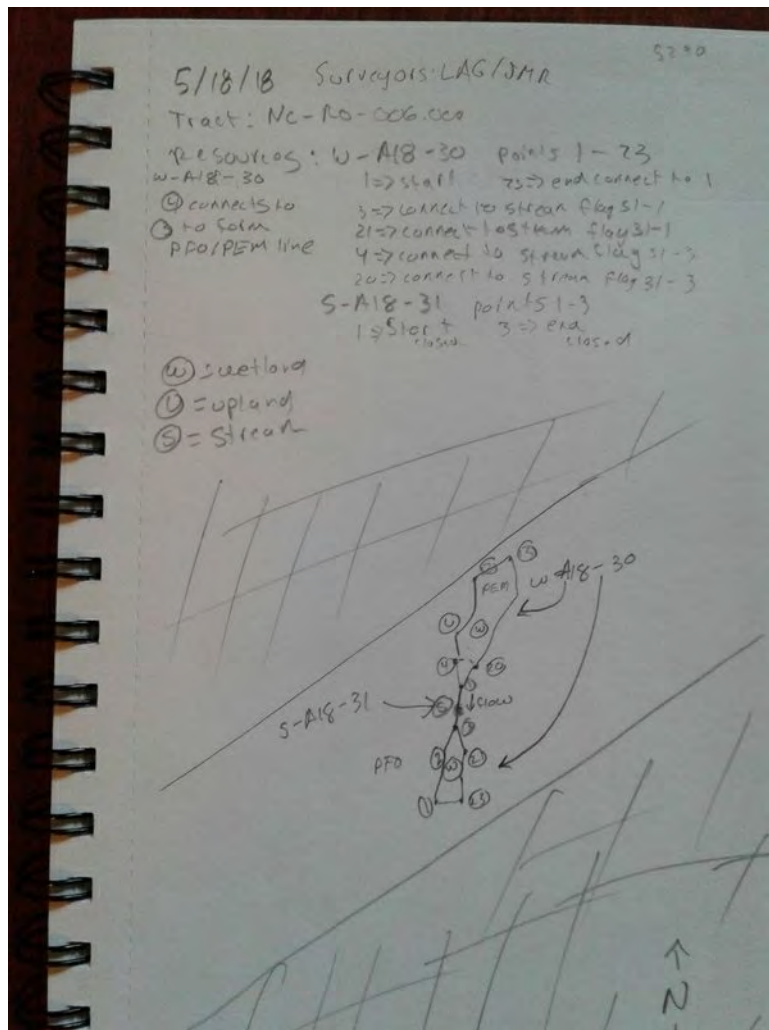 5290
5/18/18 Surveyors: LAG/JMR
Tract: NC-RO-006.000
Resources: W-A18-30 points 1-23
W-A18-30
1=>start 23=>end connect to 1
④ connects to
3=>connect to stream flag 31-1
③ to form
21=>connect to stream flag 31-1
PFO/PEM line
4=>connect to stream flag 31-3
20=>connect to stream flag 31-3
S-A18-31 points 1-3
1=>Start 3=>end
closed closed
Ⓦ = wetland
Ⓤ = upland
Ⓢ = Stream
PEM
W-A18-30
Ⓤ Ⓦ
④ 20
S-A18-31
Ⓢ
flow
PFO
③
Ⓦ
21
①
23
N